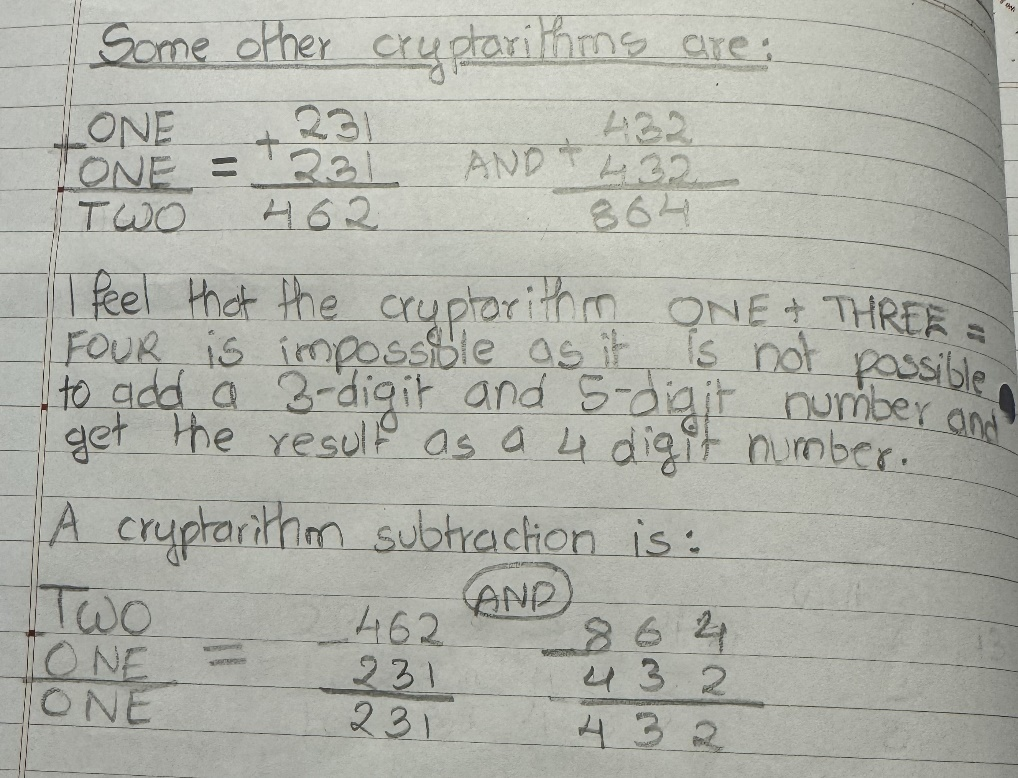 Some other cryptarithms are:
+ ONE = + 231 AND + 432
ONE 231 432
TWO 462 864
I feel that the cryptarithm ONE + THREE =
FOUR is impossible as it is not possible
to add a 3-digit and 5-digit number and
get the result as a 4 digit number.
A cryptarithm subtraction is:
AND
- TWO = - 462 - 864
ONE 231 432
ONE 231 432